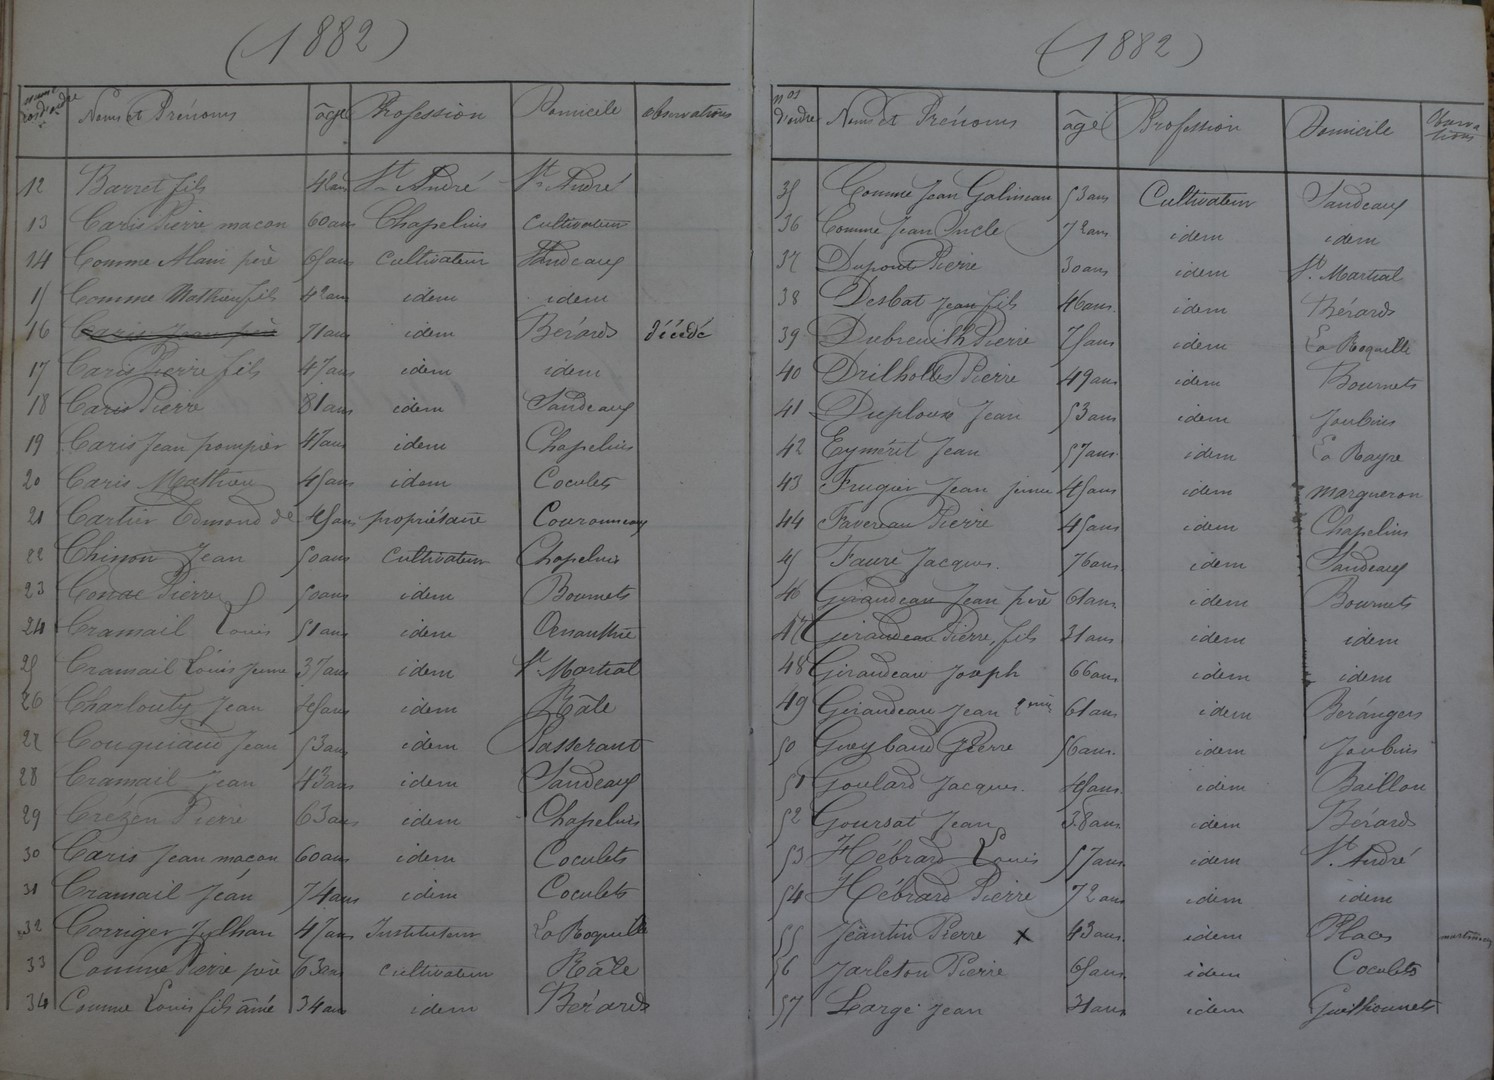 (1882)
Noms et Prénoms âge Profession Domicile observations
12 Barret fils St André St André
13 Caris Pierre maçon 60 ans Chapelins Cultivateur
14 Comme Alain père 65 ans Cultivateur Sandeaux
15 Comme Mathieu fils 42 ans idem idem
16 Caris Jean père 71 ans idem Bérards décédé
17 Caris Pierre fils 47 ans idem idem
18 Caris Pierre 81 ans idem Sandeaux
19 Caris Jean pompier 47 ans idem Chapelins
20 Caris Mathieu 45 ans idem Coculets
21 Cartier Edmond de 45 ans propriétaire Couronneau
22 Chinon Jean 50 ans Cultivateur Chapelins
23 Pierre 50 ans idem Bournets
24 Cramail Louis 51 ans idem
25 Cramail Louis jeune 37 ans idem St Martial
26 Charlouty Jean 45 ans idem Râle
27 Couquiaud Jean 53 ans idem Passerant
28 Cramail Jean 43 ans idem Sandeaux
29 Crézen Pierre 63 ans idem Chapelins
30 Caris Jean maçon 60 ans idem Coculets
31 Cramail Jean 74 ans idem Coculets
32 Corriger Julhan 47 ans Instituteur La Roquille
33 Comme Pierre père 63 ans cultivateur Râle
34 Comme Louis fils âiné 34 ans idem Bérards
(1882)
nos d'ordre Noms et Prénoms âge Profession Domicile Observations
35 Comme Jean Galineau 53 ans Cultivateur Sandeaux
36 Comme Jean Oncle 72 ans idem idem
37 Dupont Pierre 30 ans idem St Martial
38 Desbat Jean fils 46 ans idem Bérards
39 Dubreuilh Pierre 75 ans idem La Roquille
40 Drilholles Pierre 49 ans idem Bournets
41 Duploux Jean 53 ans idem Joubins
42 Eymérit Jean 57 ans idem La Rayre
43 Frugier Jean jeune 45 ans idem margueron
44 Favereau Pierre 45 ans idem Chapelins
45 Faure Jacques 76 ans idem Sandeaux
46 Girandeau Jean père 61 ans idem Bournets
47 Girandeau Pierre fils 31 ans idem idem
48 Girandeau Joseph 66 ans idem idem
49 Girandeau Jean 61 ans idem Berangers
50 Gueybaud Pierre 56 ans idem Joubins
51 Goulard Jacques 45 ans idem Baillou
52 Goursat Jean 38 ans idem Bérards
53 Hébrard Louis 57 ans idem St André
54 Hébrard Pierre 72 ans idem idem
55 Jeantin Pierre x 43 ans idem Places
56 Jarleton Pierre 65 ans idem Coculets
57 Large Jean 31 ans idem Guilhonnets